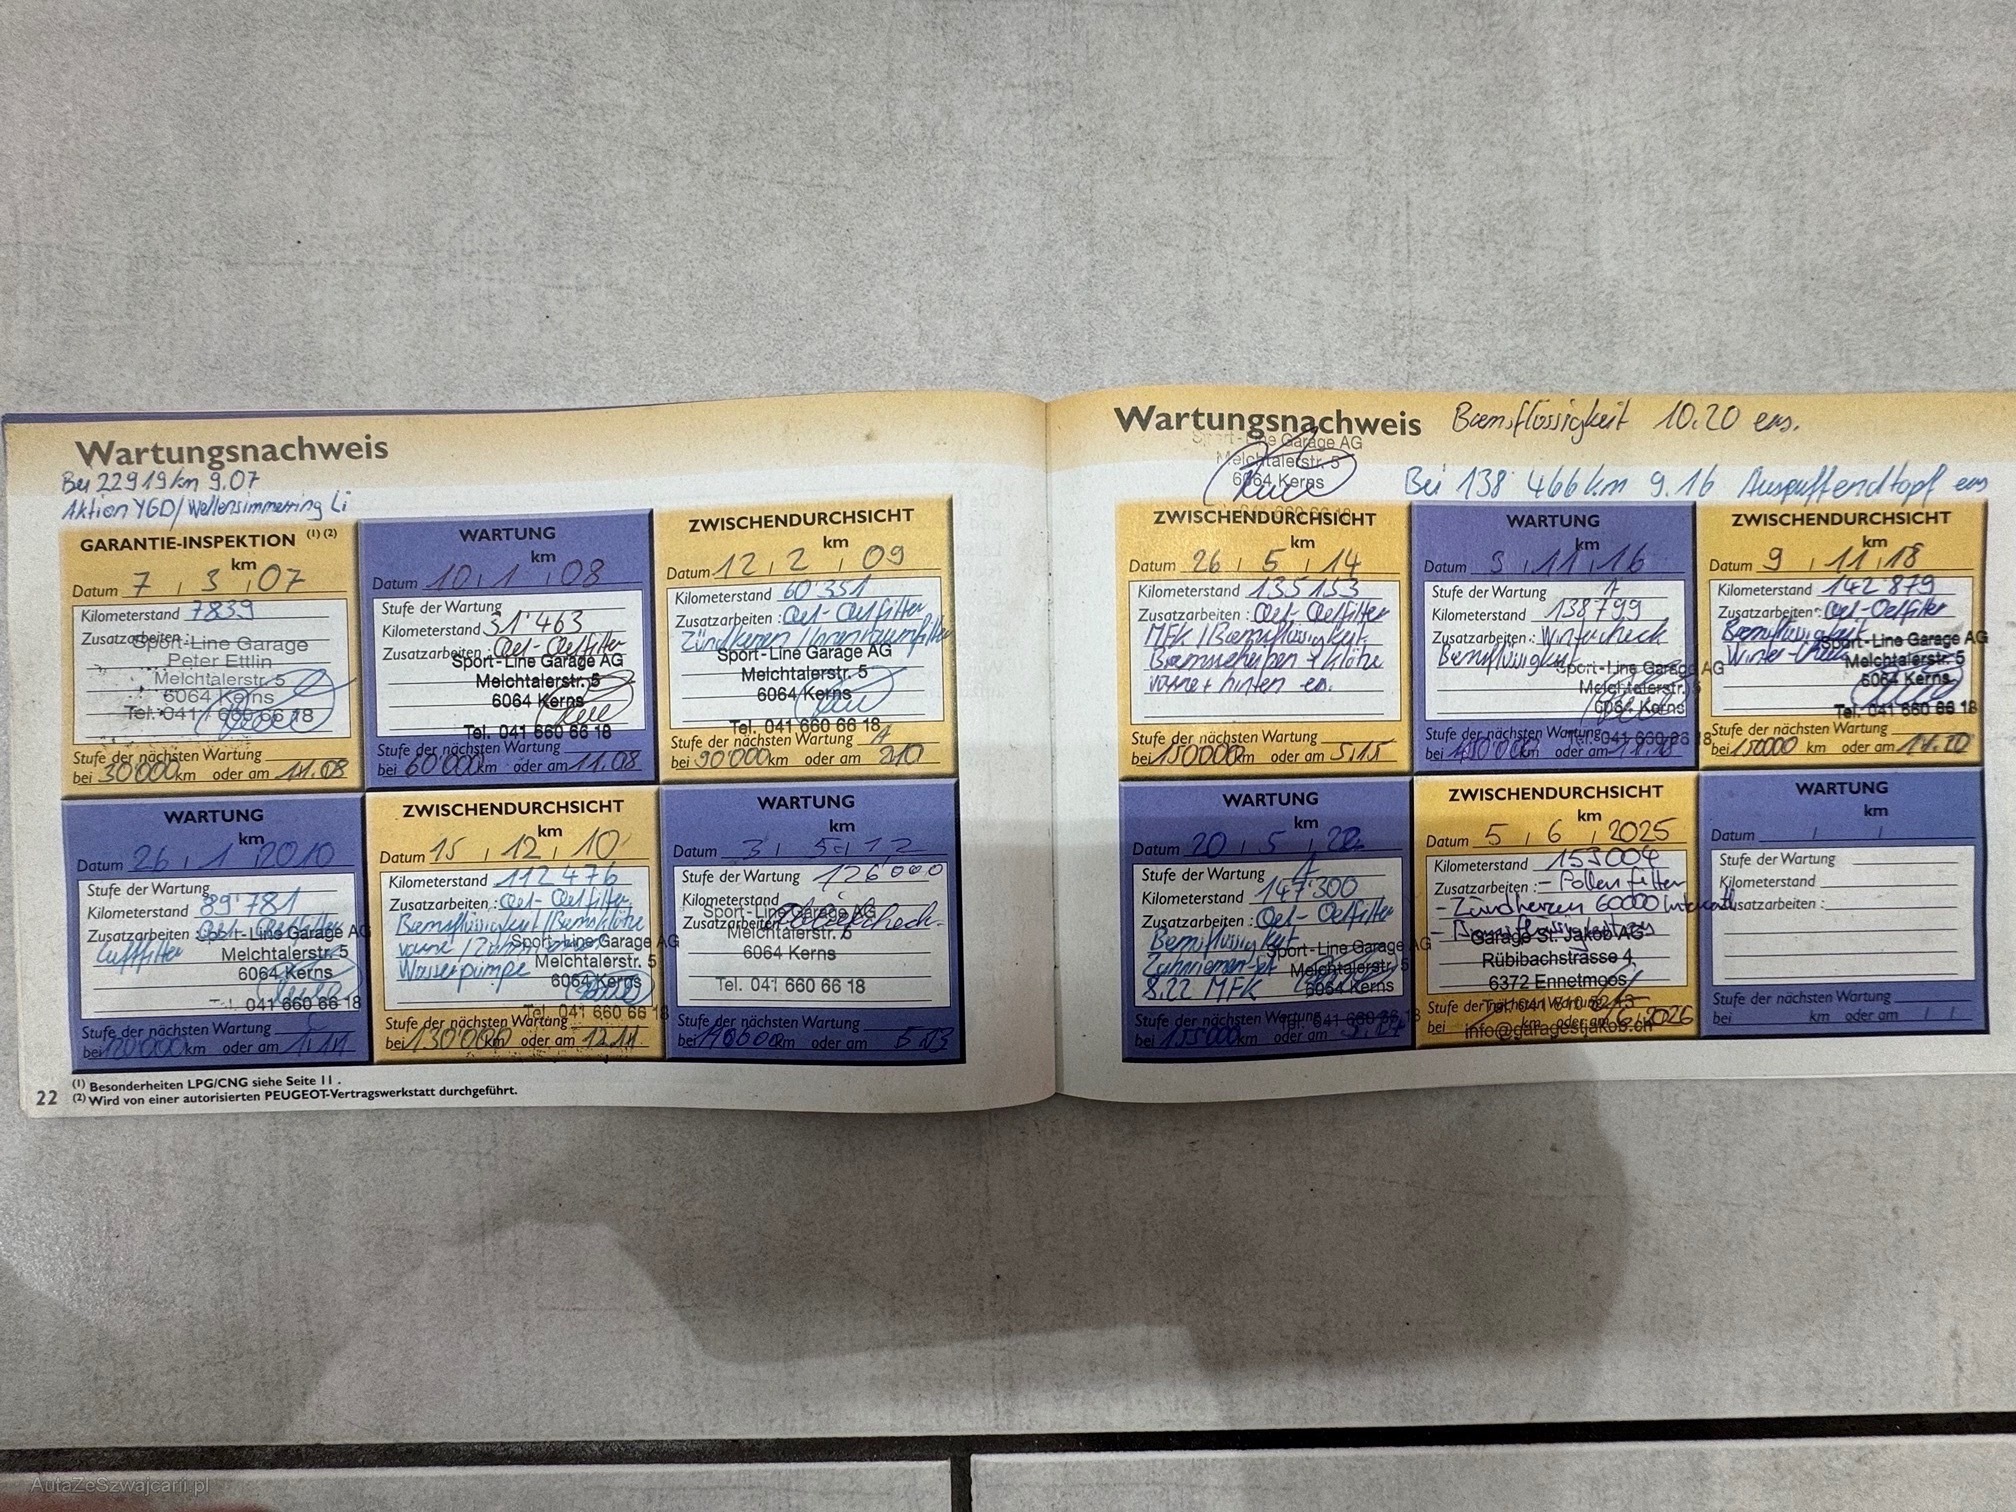 Wartungsnachweis
Bei 22919km 9.07
Aktion YGD/Wellensimmerring Li
GARANTIE-INSPEKTION (1) (2)
km
Datum 7 3 07
Kilometerstand 7839
Zusatzarbeiten :
Sport-Line Garage
Peter Ettlin
Melchtalerstr. 5
6064 Kerns
Tel. 041 / 660 66 18
Stufe der nächsten Wartung
bei 30'000 km oder am 11.08
WARTUNG
km
Datum 10 1 08
Stufe der Wartung
Kilometerstand 31'463
Zusatzarbeiten : Oel-Oelfilter
Sport-Line Garage AG
Melchtalerstr. 5
6064 Kerns
Tel. 041 660 66 18
Stufe der nächsten Wartung
bei 60'000 km oder am 11.08
ZWISCHENDURCHSICHT
km
Datum 12 2 09
Kilometerstand 60'351
Zusatzarbeiten : Oel-Oelfilter
Zündkerzen / Innenraumfilter
Sport-Line Garage AG
Melchtalerstr. 5
6064 Kerns
Tel. 041 660 66 18
Stufe der nächsten Wartung A
bei 90'000 km oder am 2.10
WARTUNG
km
Datum 26 1 2010
Stufe der Wartung
Kilometerstand 89'781
Zusatzarbeiten : Oel-Oelfilter
Luftfilter
Sport-Line Garage AG
Melchtalerstr. 5
6064 Kerns
Tel. 041 660 66 18
Stufe der nächsten Wartung
bei 120'000 km oder am 1.11
ZWISCHENDURCHSICHT
km
Datum 15 12 10
Kilometerstand 112'476
Zusatzarbeiten : Oel-Oelfilter
Bremsflüssigkeit / Bremsklötze
vorne /
Wasserpumpe
Sport-Line Garage AG
Melchtalerstr. 5
6064 Kerns
Tel. 041 660 66 18
Stufe der nächsten Wartung
bei 130'000 km oder am 12.11
WARTUNG
km
Datum 3 5 12
Stufe der Wartung 126'000
Kilometerstand
Zusatzarbeiten :
Sport-Line Garage AG
Melchtalerstr. 5
6064 Kerns
Tel. 041 660 66 18
Stufe der nächsten Wartung
bei km oder am 5.13
22
(1) Besonderheiten LPG/CNG siehe Seite 11 .
(2) Wird von einer autorisierten PEUGEOT-Vertragswerkstatt durchgeführt.
Wartungsnachweis
Bremsflüssigkeit 10.20 ers.
Sport-Line Garage AG
Melchtalerstr. 5
6064 Kerns
041 660 66 18
Bei 138'466km 9.16 Auspuffendtopf ers
ZWISCHENDURCHSICHT
km
Datum 26 5 14
Kilometerstand 135'153
Zusatzarbeiten : Oel-Oelfilter
MFK / Bremsflüssigkeit
Bremsscheiben + Klötze
vorne + hinten ers.
Stufe der nächsten Wartung
bei 150000 km oder am 5.15
WARTUNG
km
Datum 9 11 16
Stufe der Wartung A
Kilometerstand 138799
Zusatzarbeiten : Wintercheck
Bremsflüssigkeit
Sport-Line Garage AG
Melchtalerstr. 5
6064 Kerns
Tel. 041 660 66 18
Stufe der nächsten Wartung
bei 150'000 km oder am 11.18
ZWISCHENDURCHSICHT
km
Datum 9 11 18
Kilometerstand 142'879
Zusatzarbeiten : Oel-Oelfilter
Bremsflüssigkeit
Winter-Check
Sport-Line Garage AG
Melchtalerstr. 5
6064 Kerns
Tel. 041 660 66 18
Stufe der nächsten Wartung
bei 150000 km oder am 11.20
WARTUNG
km
Datum 20 5 22
Stufe der Wartung A
Kilometerstand 147'300
Zusatzarbeiten : Oel-Oelfilter
Bremsflüssigkeit
Zahnriemen-Set
8.22 MFK
Sport-Line Garage AG
Melchtalerstr. 5
6064 Kerns
Tel. 041 660 66 18
Stufe der nächsten Wartung
bei 155'000 km oder am 5.24
ZWISCHENDURCHSICHT
km
Datum 5 6 2025
Kilometerstand 153004
Zusatzarbeiten : - Pollenfilter
- Zündkerzen 60000 Intervall
- Bremsflüssigkeit
Garage St. Jakob AG
Rübibachstrasse 4
6372 Ennetmoos
Stufe der nächsten Wartung
bei km oder am 6/2026
info@garagestjakob.ch
WARTUNG
km
Datum
Stufe der Wartung
Kilometerstand
Zusatzarbeiten :
Stufe der nächsten Wartung
bei km oder am
AutaZeSzwajcarii.pl